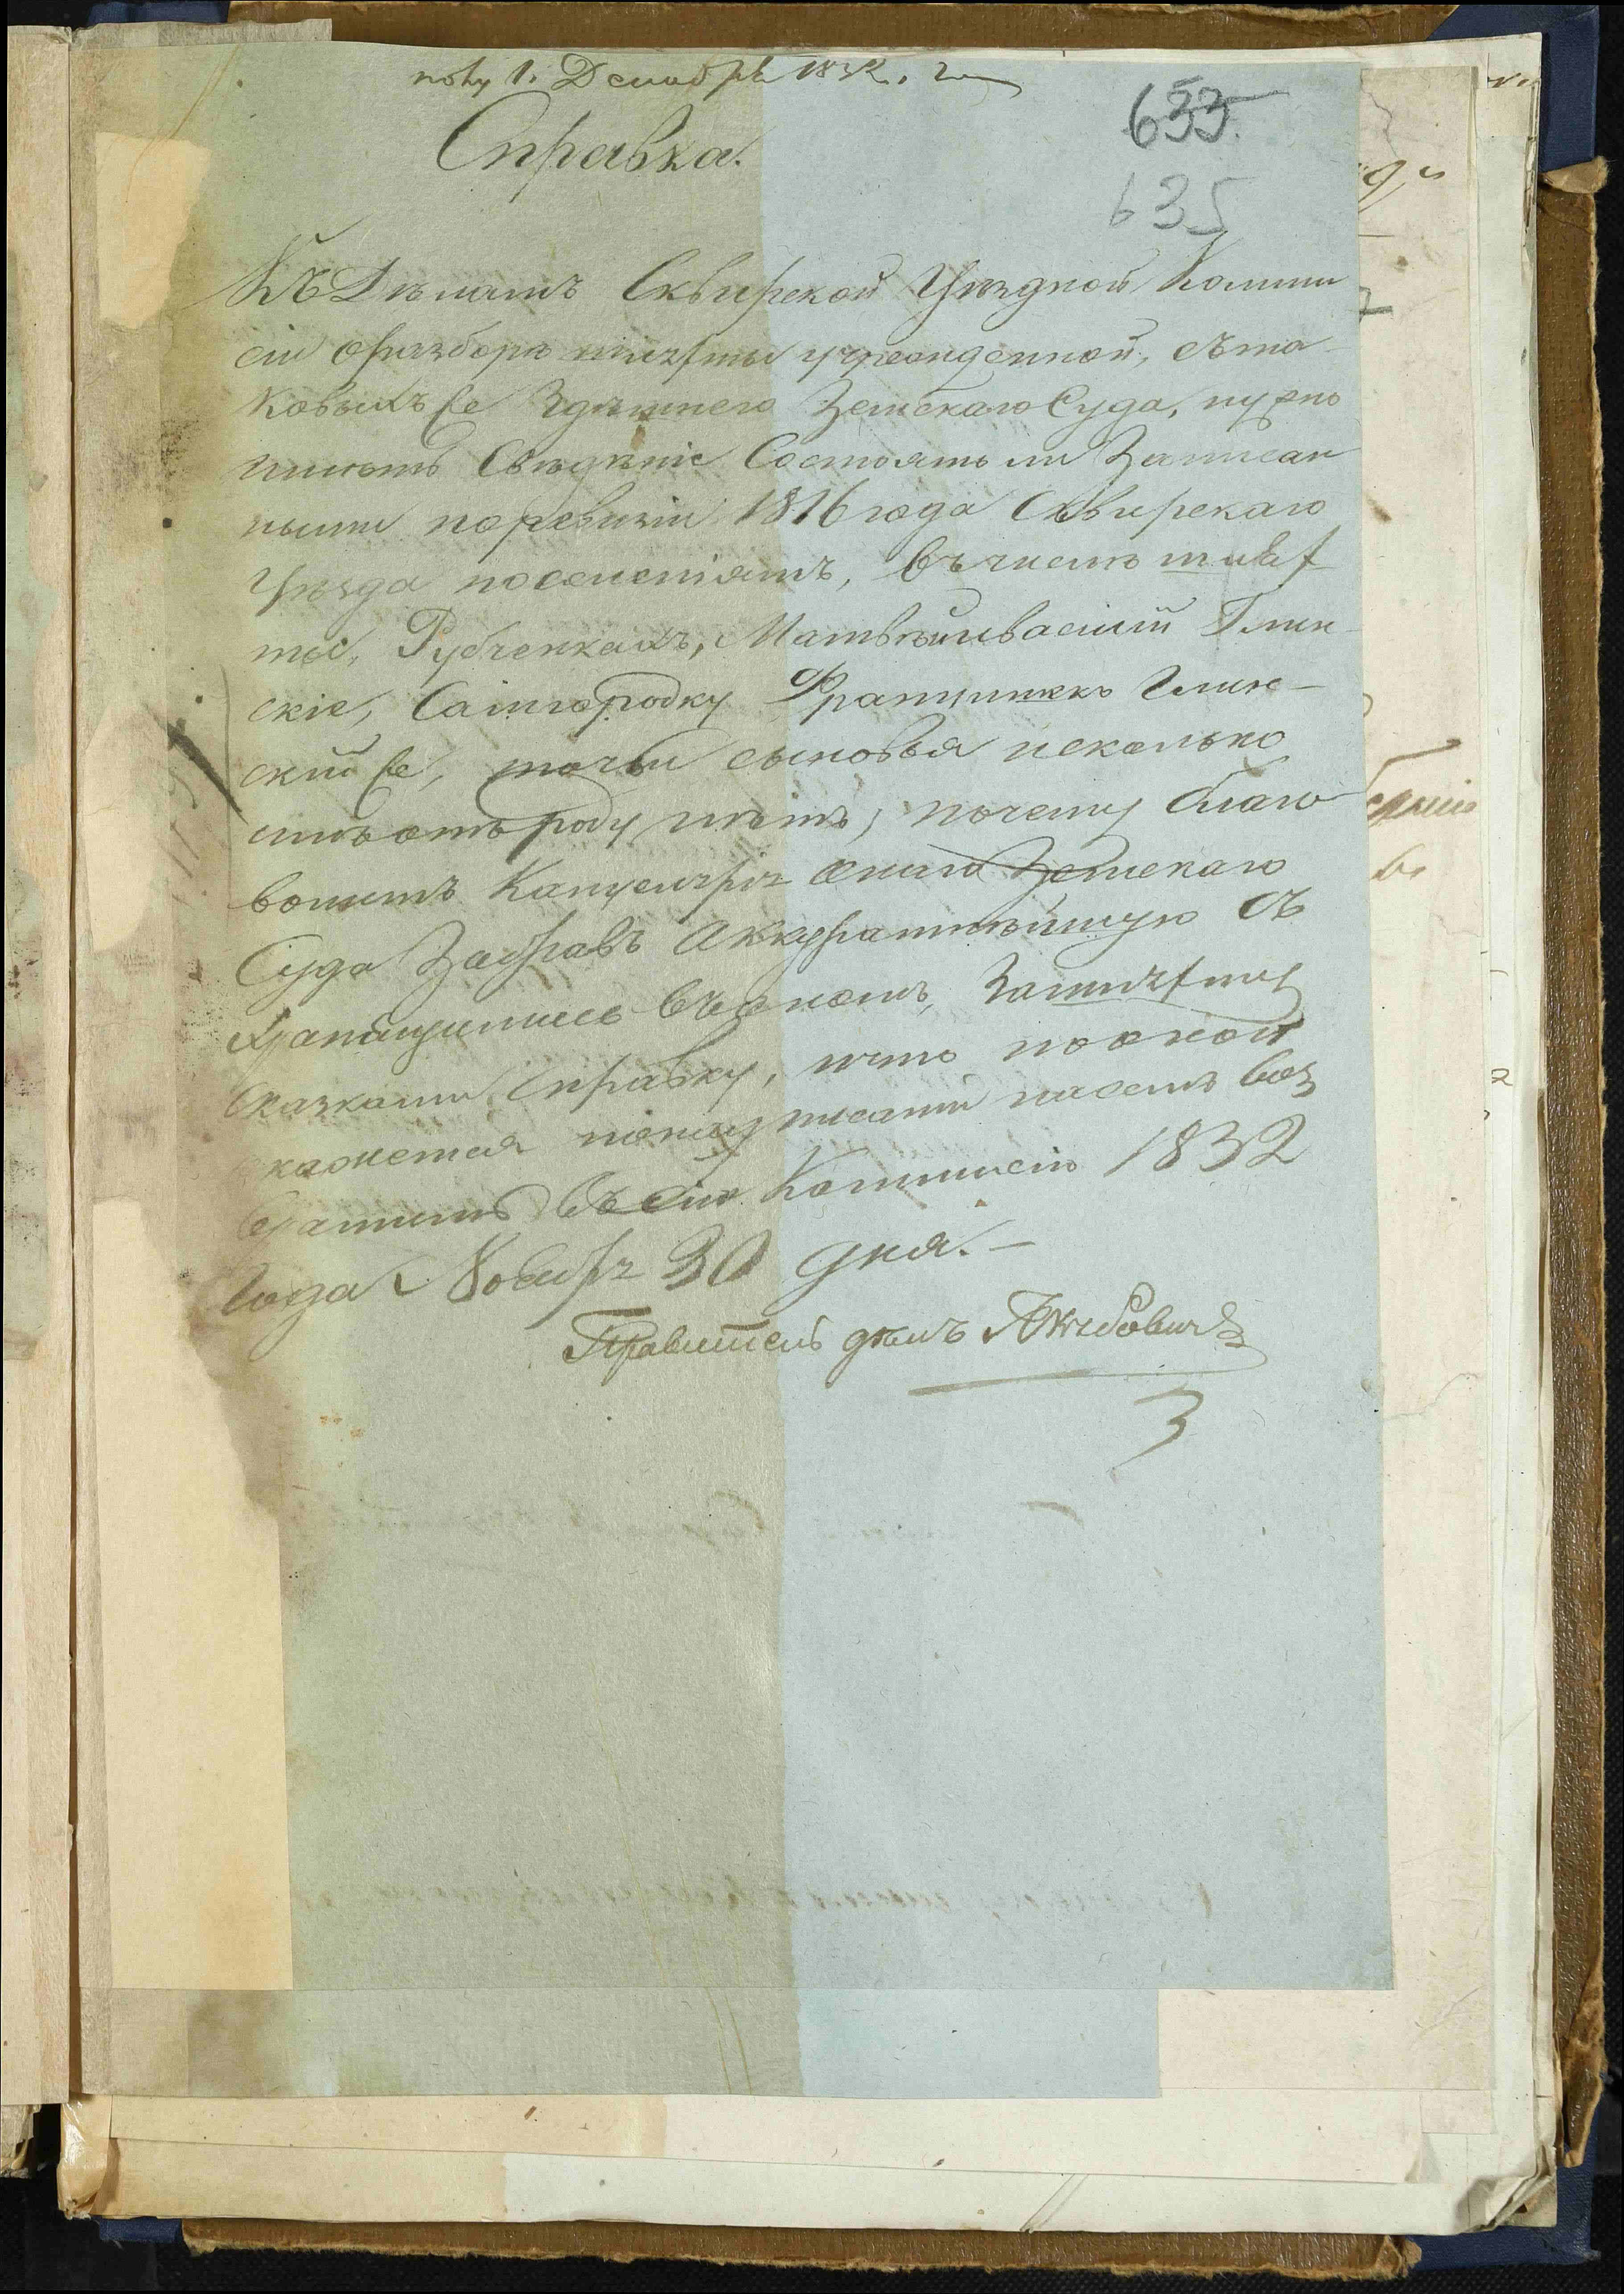 1. Декабря 1832.
Справка.
633.
635
Къ Дѣламъ Сквирской Уѣздной Комми
сіи о разборѣ шляхты учрежденной, съ та-
ковыхъ же Здѣшнего Земскаго Суда, нужно
имѣть Свѣдѣніе Состоятъ ли Записан
ными по ревизіи 1816 года Сквирскаго
Уѣзда по селеніямъ, въ числѣ шлях
ты, Рубченкахъ, Матвѣй и Василій Глин-
скіе, Саингородку Францишекъ Глин-
скій же, сыновья и сколько
имъ отъ роду лѣтъ, почему благо
волитъ Канцелярія онаго Земскаго
Суда Забравъ Аккуратнѣйшую съ
хранящимись въ ономъ,
Сказками Справку, и что по оной
кажется написаніи на семъ воз
вратить въ сію Коммисію 1832
года Ноября 30 дня.-
Правитель дѣлъ
3